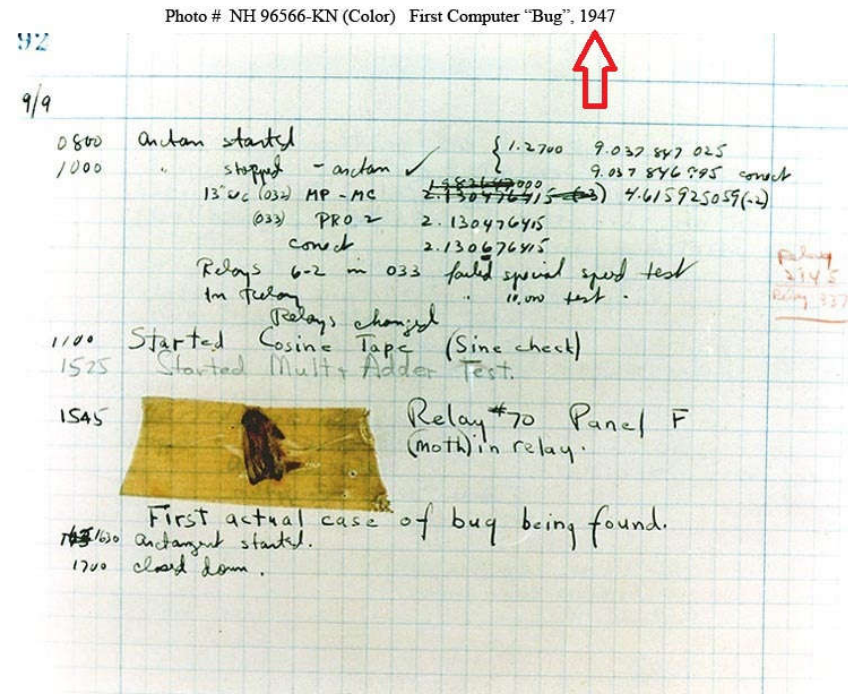 Photo # NH 96566-KN (Color) First Computer “Bug”, 1947
92
9/9
0800 antan started { 1.2700 9.037 847 025
1000 " stopped - antan ✓ 9.037 846 995 conect
13"uc (032) MP - MC 2.130476415 (-3) 4.615925059(-2)
(033) PRO 2 2.130476415
conect 2.130676415
Relays 6-2 in 033 failed special speed test
In Relay " 10,000 test .
Relays changed
1100 Started Cosine Tape (Sine check)
1525 Started Mult + Adder Test.
1545 Relay #70 Panel F
(Moth) in relay.
First actual case of bug being found.
1630 antangent started.
1700 closed down .
Relay
Relay 337